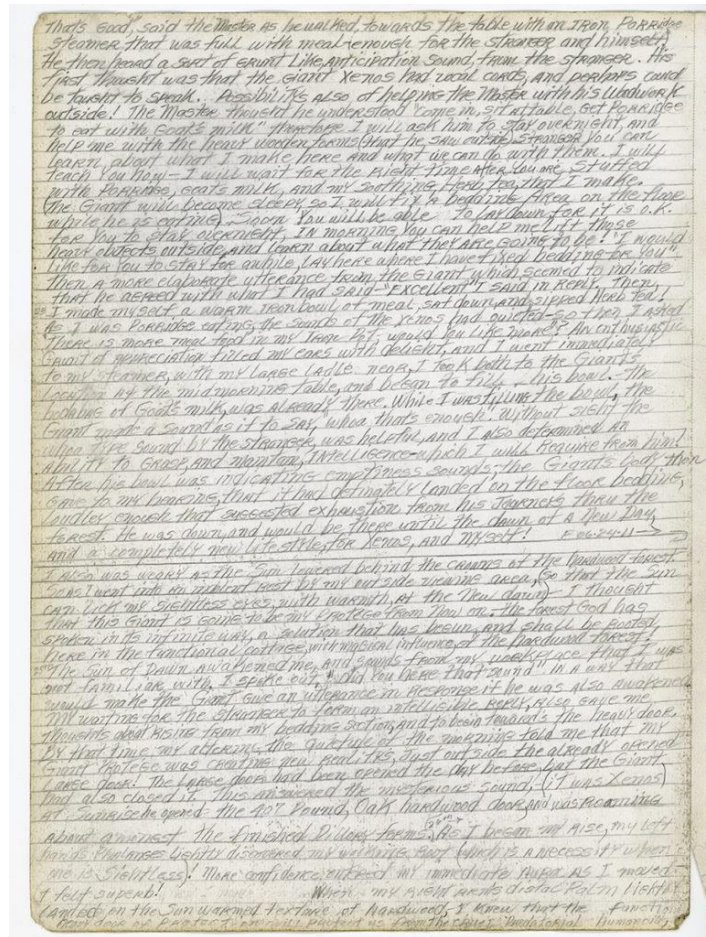 "That's Good", said the Master as he walked, towards the table with an Iron Porridge
steamer that was full with meal enough for the stranger and himself
He then heard a sort of grunt like anticipation sound, from the stranger. His
first thought was that the Giant Xenos had vocal cords, and perhaps could
be taught to speak. Possibility's also, of helping the Master with his Woodwork
outside! The Master thought he understood "come in, sit at table, get Porridge
to eat with Goat's milk" therefore I will ask him to stay overnight, and
help me with the heavy wooden forms (that he saw outside) stranger you can
learn, about what I make here and what we can do with them. I will
teach you how - I will wait for the right time after you are, stuffed
with Porridge, goats milk, and my soothing, Herb tea, that I make.
(the Giant will become sleepy so I will fix a bedding area, on the floor
while he is eating). Soon you will be able to lay down for it is O.K.
for you to stay overnight. In morning you can help me lift those
heavy objects outside, and learn about what they are going to be! "I would
like for you to stay for awhile, lay here where I have fixed bedding for you",
then a more elaborate utterance from the Giant which seemed to indicate
that he agreed with what I had said - "Excellent" I said in reply. Then,
I made myself, a warm iron bowl of meal, sat down, and sipped Herb tea!
As I was Porridge eating, the sounds of the Xenos had quieted - so then I asked
there is more meal food in my Iron Pot, would you like more"? An enthusiastic
grunt of appreciation filled my ears with delight, and I went immediately
to my steamer, with my large ladle near, I took both to the Giants
location at the midmorning table, and began to fill - his bowl. - The
of Goat's milk, was already there. While I was filling the bowl, the
Giant made a sound as if to say, whoa that's enough" Without sight the
whoa type sound by the stranger was helpful, and I also determined an
ability to grasp, and maintain, intelligence - which I will require from him!
After his bowl was indicating emptiness sounds - the Giants body then
gave to my hearing, that it had definately landed on the floor bedding,
loudley enough that suggested exhaustion from his journeys thru the
forest. He was down, and would be there until the dawn of a New Day,
and a completely new life style, for Xenos, and myself!
I also was weary as the Sun lowered behind the crowns of the hardwood forest
so as I went into an rest by my outside area, (so that the Sun
can lick my sightless eyes, with warmth, at the New dawn) - I thought
that this Giant is going to be my Protege from now on. - the forest God has
spoken in its infinite way, a solution that has begun, and shall be rooted,
here in the functional cottage, with mystical influence, of the hardwood forest!
The Sun of Dawn awakened me, and sounds from my workplace that I was
not familiar with. I spoke out, "did you here that sound" in a way that
would make the Giant give an utterance in response if he was also awakened
My waiting for the stranger to form an intelligible reply, also gave me
thoughts about rising from my bedding section, and to begin towards the heavy door.
By that time my, the quietude of the morning told me that my
Giant Protege was creating new realitys, just outside the already opened
Large door! The Large door had been opened the day before, but the Giant,
had also closed it. This answered the mysterious sound, (it was Xenos)
at sunrise he opened the 407 Pound, Oak hardwood door, and was roaming
about amongst the finished Pillory forms. As I began my rise, my left
hands Phalanges lightly discovered my walking Root (which is a necessity when
one is Sightless)! More confidence entered my immediate Aura as I moved
I felt superb! When my right arms distal Palm lightly
landed on the Sun warmed texture of hardwood, I knew that the function